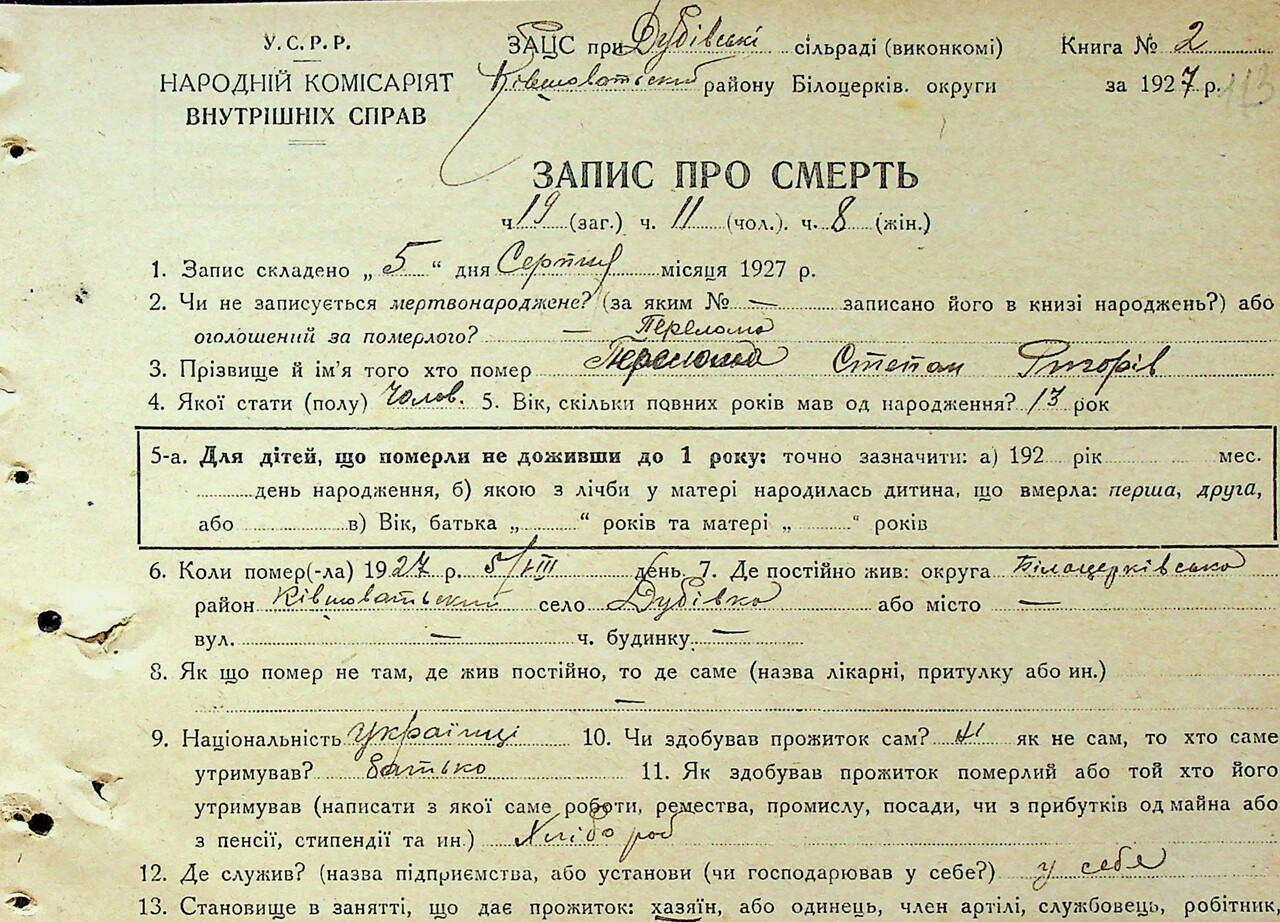 У.С.Р.Р.
НАРОДНІЙ КОМІСАРІЯТ
ВНУТРІШНІХ СПРАВ
ЗАЦС при Дубівські сільраді (виконкомі)
Ківшоватьский району Білоцерків. округи
Книга № 2
за 1927 р. 113
ЗАПИС ПРО СМЕРТЬ
ч 19 (заг.) ч. 11 (чол.). ч. 8 (жін.)
1. Запис складено „ 5 “ дня Серпня місяця 1927 р.
2. Чи не записується мертвонароджене? (за яким № — записано його в книзі народжень?) або
оголошений за померлого? — Перелома
3. Прізвище й ім'я того хто помер Перелома Степан Григорів
4. Якої стати (полу) Чолов. 5. Вік, скільки повних років мав од народження? 13 рок
5-а. Для дітей, що померли не доживши до 1 року: точно зазначити: а) 192 рік мес.
день народження, б) якою з лічби у матері народилась дитина, що вмерла: перша, друга,
або в) Вік, батька „ “ років та матері „ “ років
6. Коли помер(-ла) 1927 р. 5/VIII день. 7. Де постійно жив: округа Білоцерківсько
район Ківшоватьский село Дубівка або місто —
вул. — ч. будинку —
8. Як що помер не там, де жив постійно, то де саме (назва лікарні, притулку або ин.)
—
9. Національність українці 10. Чи здобував прожиток сам? ні як не сам, то хто саме
утримував? батько 11. Як здобував прожиток померлий або той хто його
утримував (написати з якої саме роботи, ремества, промислу, посади, чи з прибутків од майна або
з пенсії, стипендії та ин.) Хлібороб
12. Де служив? (назва підприємства, або установи (чи господарював у себе?) у себе
13. Становище в занятті, що дає прожиток: хазяїн, або одинець, член артілі, службовець, робітник,